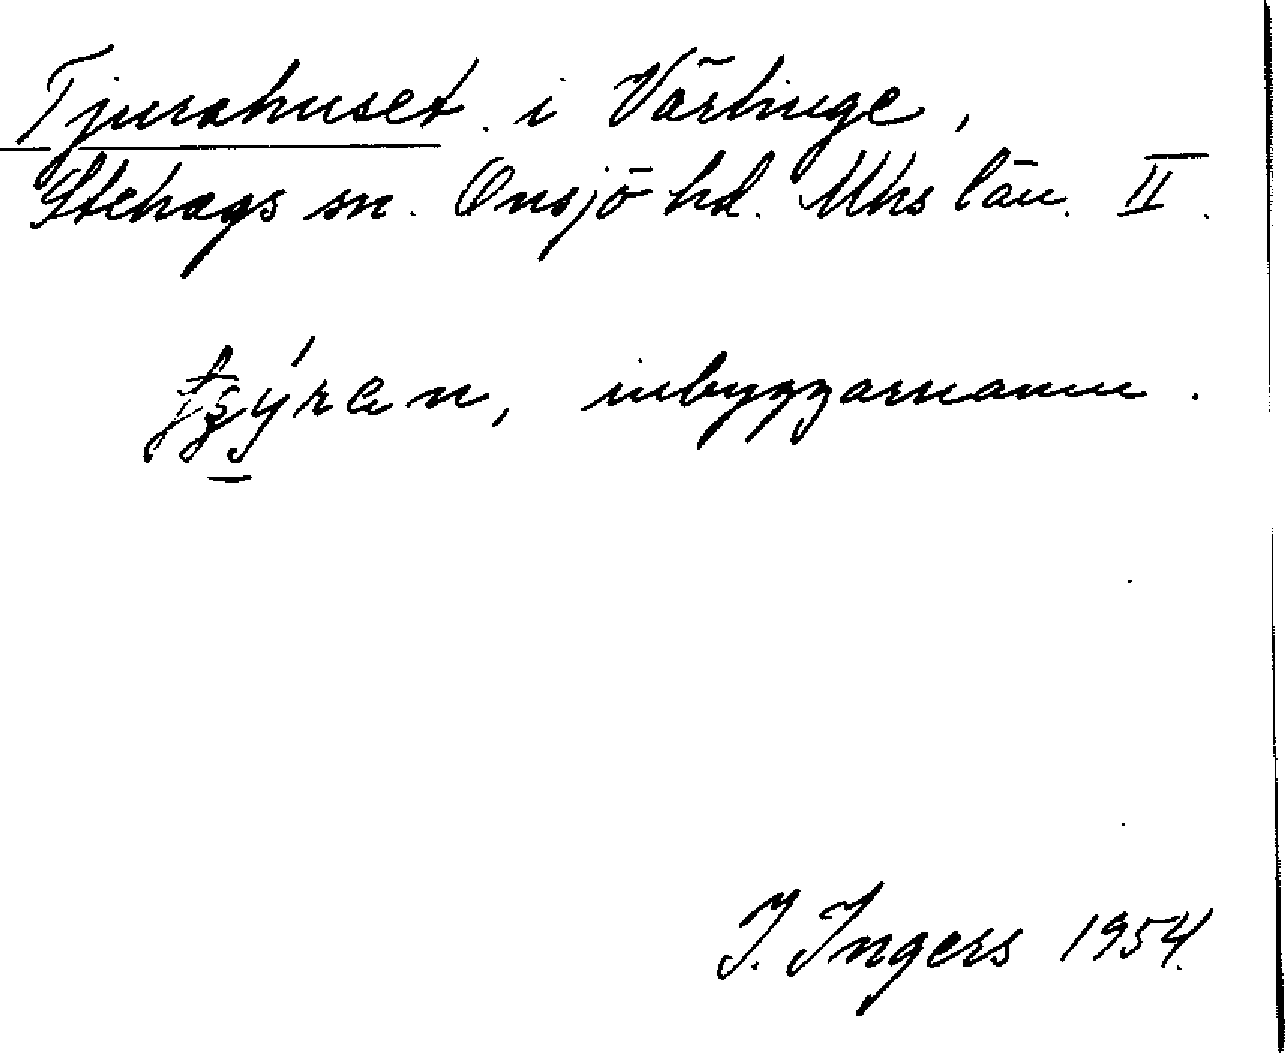 Tjurahuset i Värlinge,
Stehags sn. Onsjö hd. Mhs län. II.
inbyggarnamn.
I. Ingers 1954.